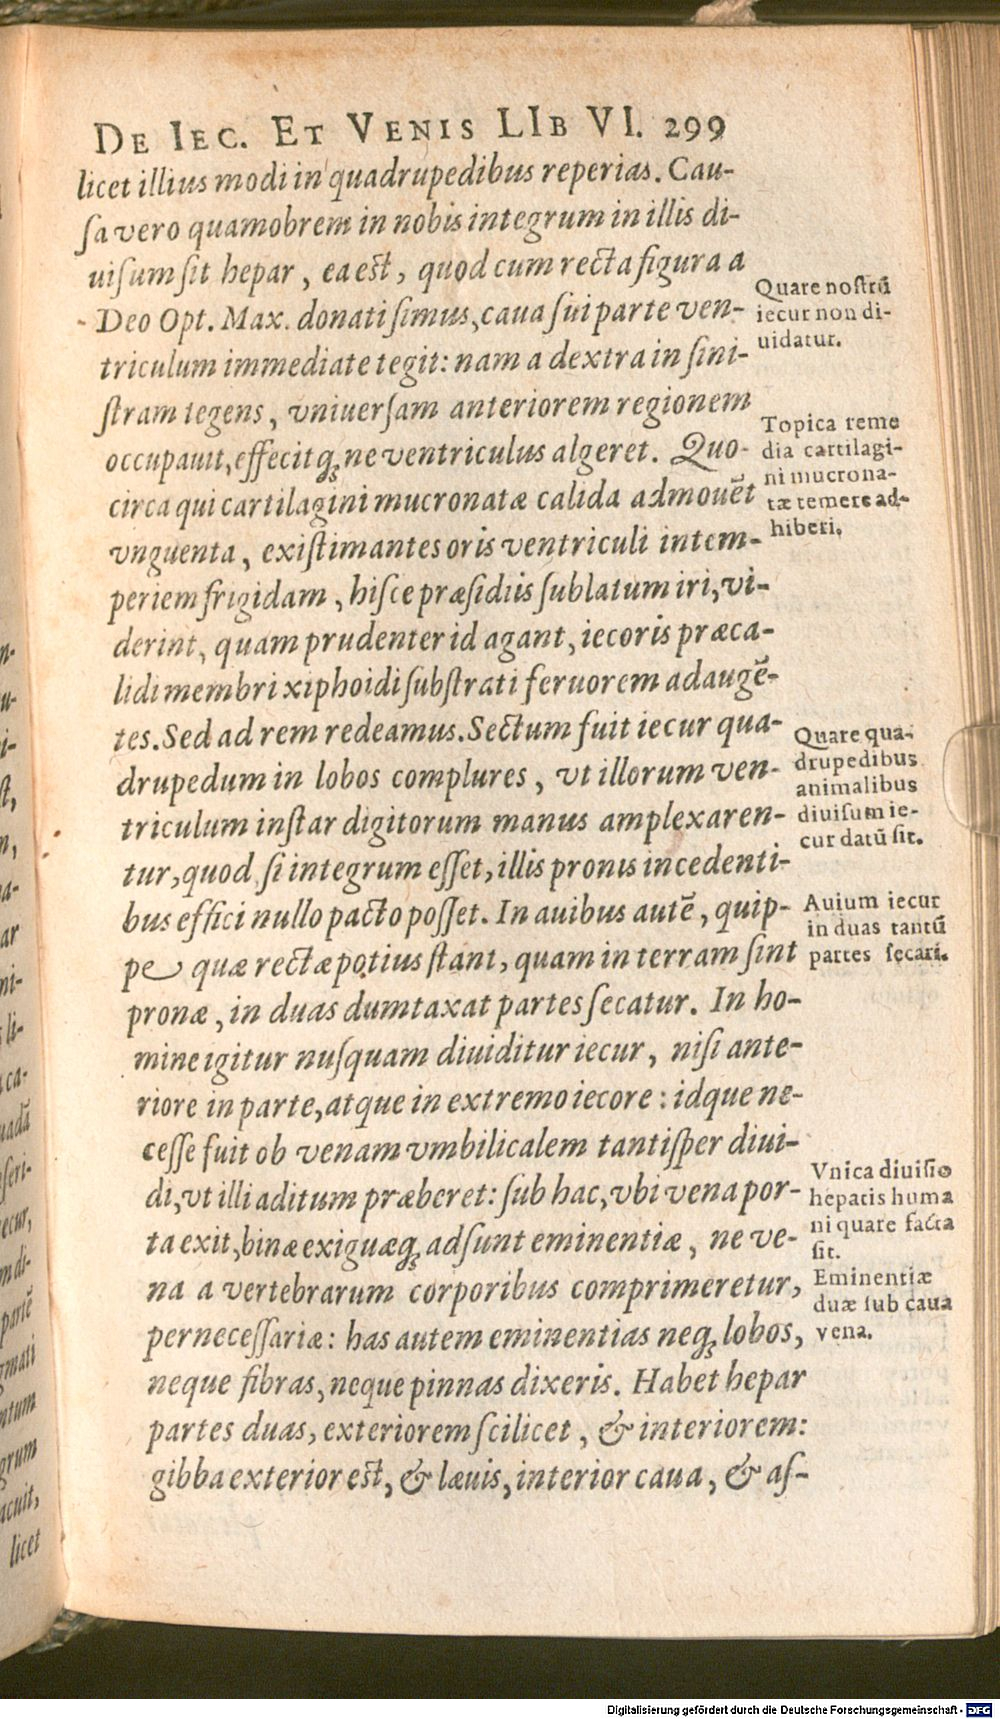 DE IEC. ET VENIS LIB VI. 299
licet illius modi in quadrupedibus reperias. Cau-
sa vero quamobrem in nobis integrum in illis di-
uisum sit hepar, ea est, quod cum recta figura a
Deo Opt. Max. donati simus, caua sui parte ven-
triculum immediate tegit: nam a dextra in sini-
stram tegens, vniuersam anteriorem regionem
occupauit, effecitq̢ ne ventriculus algeret. Quo-
circa qui cartilagini mucronatæ calida admouẽt
vnguenta, existimantes oris ventriculi intem-
periem frigidam, hisce præsidiis sublatum iri, vi-
derint, quam prudenter id agant, iecoris præca-
lidi membri xiphoidi substrati feruorem adaugẽ-
tes. Sed ad rem redeamus. Sectum fuit iecur qua-
drupedum in lobos complures, vt illorum ven-
triculum instar digitorum manus amplexaren-
tur, quod si integrum esset, illis pronis incedenti-
bus effici nullo pacto posset. In auibus autẽ, quip-
pe quæ rectæ potius stant, quam in terram sint
pronæ, in duas dumtaxat partes secatur. In ho-
mine igitur nusquam diuiditur iecur, nisi ante-
riore in parte, atque in extremo iecore: idque ne-
cesse fuit ob venam vmbilicalem tantisper diui-
di, vt illi aditum præberet: sub hac, vbi vena por-
ta exit, binæ exiguæq̢ adsunt eminentiæ, ne ve-
na a vertebrarum corporibus comprimeretur,
pernecessariæ: has autem eminentias neq̢ lobos,
neque fibras, neque pinnas dixeris. Habet hepar
partes duas, exteriorem scilicet, & interiorem:
gibba exterior est, & læuis, interior caua, & as-
Quare nostrũ
iecur non di-
uidatur.
Topica reme
dia cartilagi-
ni mucrona-
tæ temere ad-
hiberi.
Quare qua-
drupedibus
animalibus
diuisum ie-
cur datũ sit.
Auium iecur
in duas tantũ
partes secari.
Vnica diuisio
hepatis huma
ni quare facta
sit.
Eminentiæ
duæ sub caua
vena.
licet
Digitalisierung gefördert durch die Deutsche Forschungsgemeinschaft - DFG